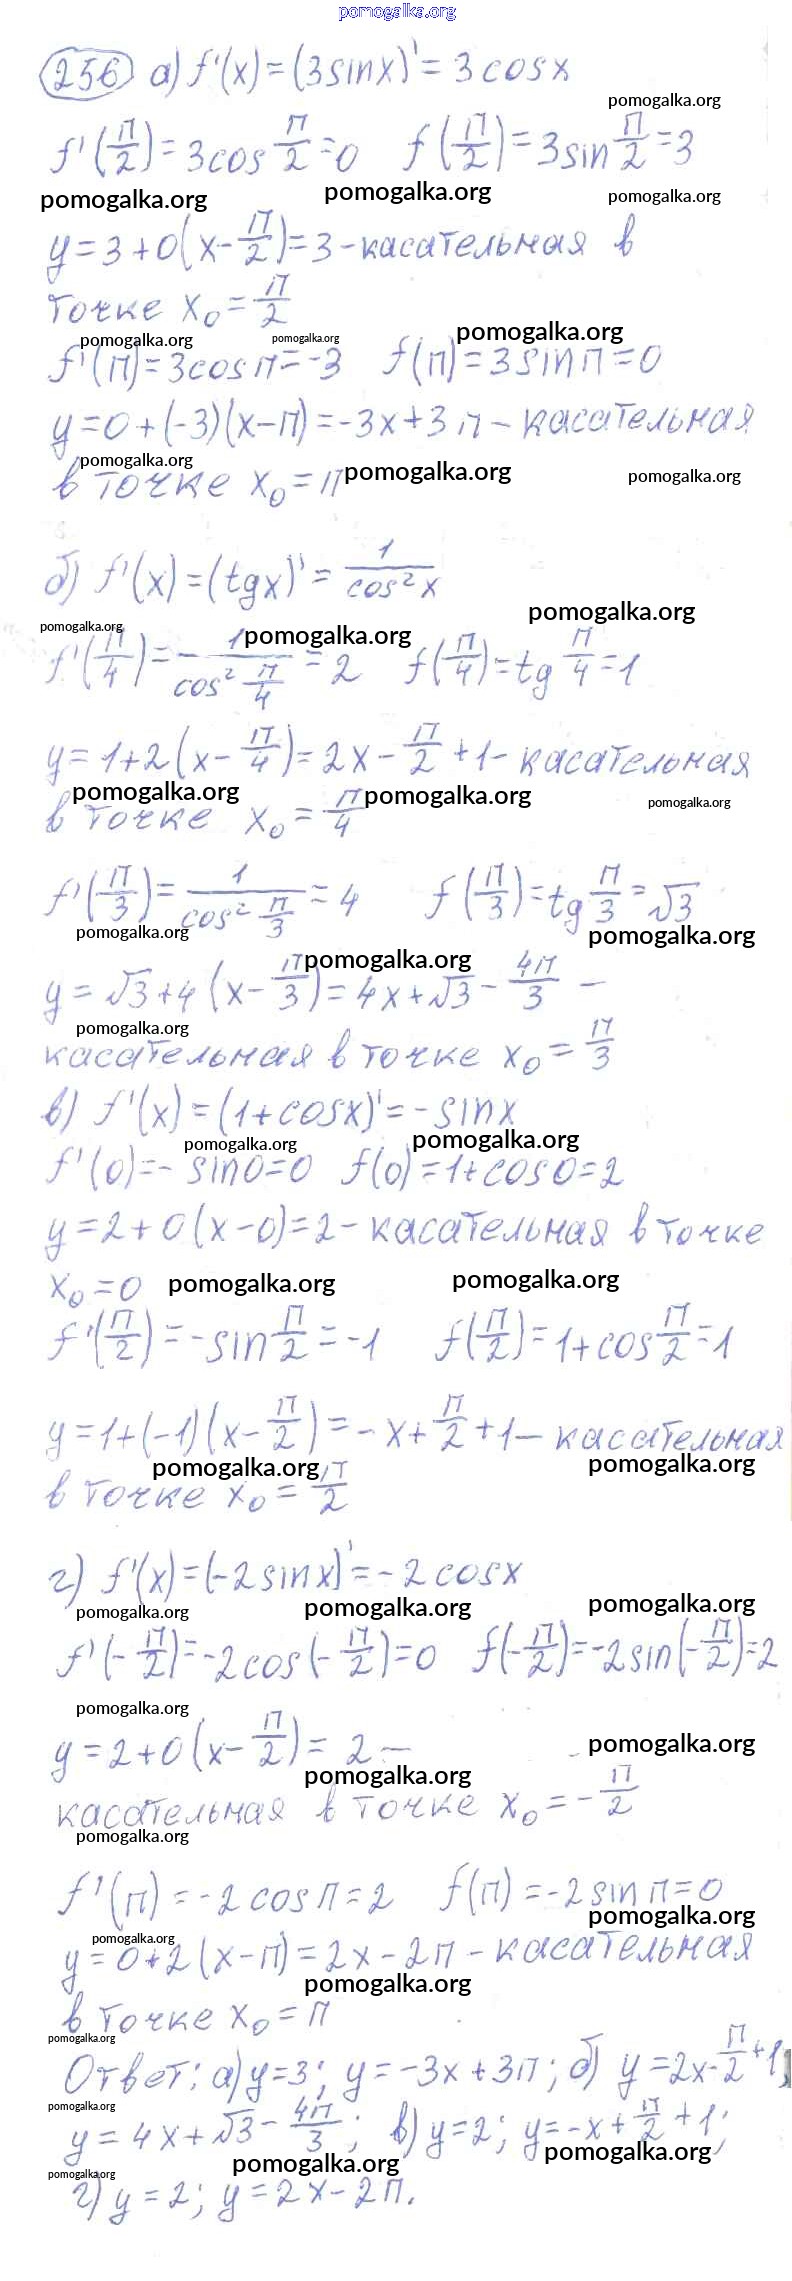 pomogalka.org
256 а) f'(x)=(3sinx)'=3cosx
pomogalka.org
f'(π/2)=3cos π/2=0 f(π/2)=3sin π/2=3
pomogalka.org pomogalka.org pomogalka.org
y=3+0(x-π/2)=3-касательная в
точке x₀=π/2
pomogalka.org pomogalka.org pomogalka.org
f'(π)=3cosπ=-3 f(π)=3sinπ=0
y=0+(-3)(x-π)=-3x+3π-касательная
pomogalka.org pomogalka.org pomogalka.org
в точке x₀=π
б) f'(x)=(tgx)'=1/cos²x
pomogalka.org pomogalka.org pomogalka.org
f'(π/4)=1/cos² π/4=2 f(π/4)=tg π/4=1
y=1+2(x-π/4)=2x-π/2+1-касательная
pomogalka.org pomogalka.org pomogalka.org
в точке x₀=π/4
f'(π/3)=1/cos² π/3=4 f(π/3)=tg π/3=√3
pomogalka.org pomogalka.org
pomogalka.org
y=√3+4(x-π/3)=4x+√3-4π/3 -
pomogalka.org
касательная в точке x₀=π/3
в) f'(x)=(1+cosx)'=-sinx
pomogalka.org pomogalka.org
f'(0)=-sin0=0 f(0)=1+cos0=2
y=2+0(x-0)=2-касательная в точке
x₀=0 pomogalka.org pomogalka.org
f'(π/2)=-sin π/2=-1 f(π/2)=1+cos π/2=1
y=1+(-1)(x-π/2)=-x+π/2+1-касательная
pomogalka.org pomogalka.org
в точке x₀=π/2
г) f'(x)=(-2sinx)'=-2cosx
pomogalka.org pomogalka.org pomogalka.org
f'(-π/2)=-2cos(-π/2)=0 f(-π/2)=-2sin(-π/2)=2
pomogalka.org
y=2+0(x-π/2)=2-
pomogalka.org pomogalka.org
касательная в точке x₀=-π/2
pomogalka.org
f'(π)=-2cosπ=2 f(π)=-2sinπ=0
pomogalka.org pomogalka.org
y=0+2(x-π)=2x-2π-касательная
pomogalka.org
в точке x₀=π
pomogalka.org
Ответ: а) y=3; y=-3x+3π; б) y=2x-π/2+1;
pomogalka.org
y=4x+√3-4π/3; в) y=2; y=-x+π/2+1;
pomogalka.org pomogalka.org pomogalka.org
г) y=2; y=2x-2π.